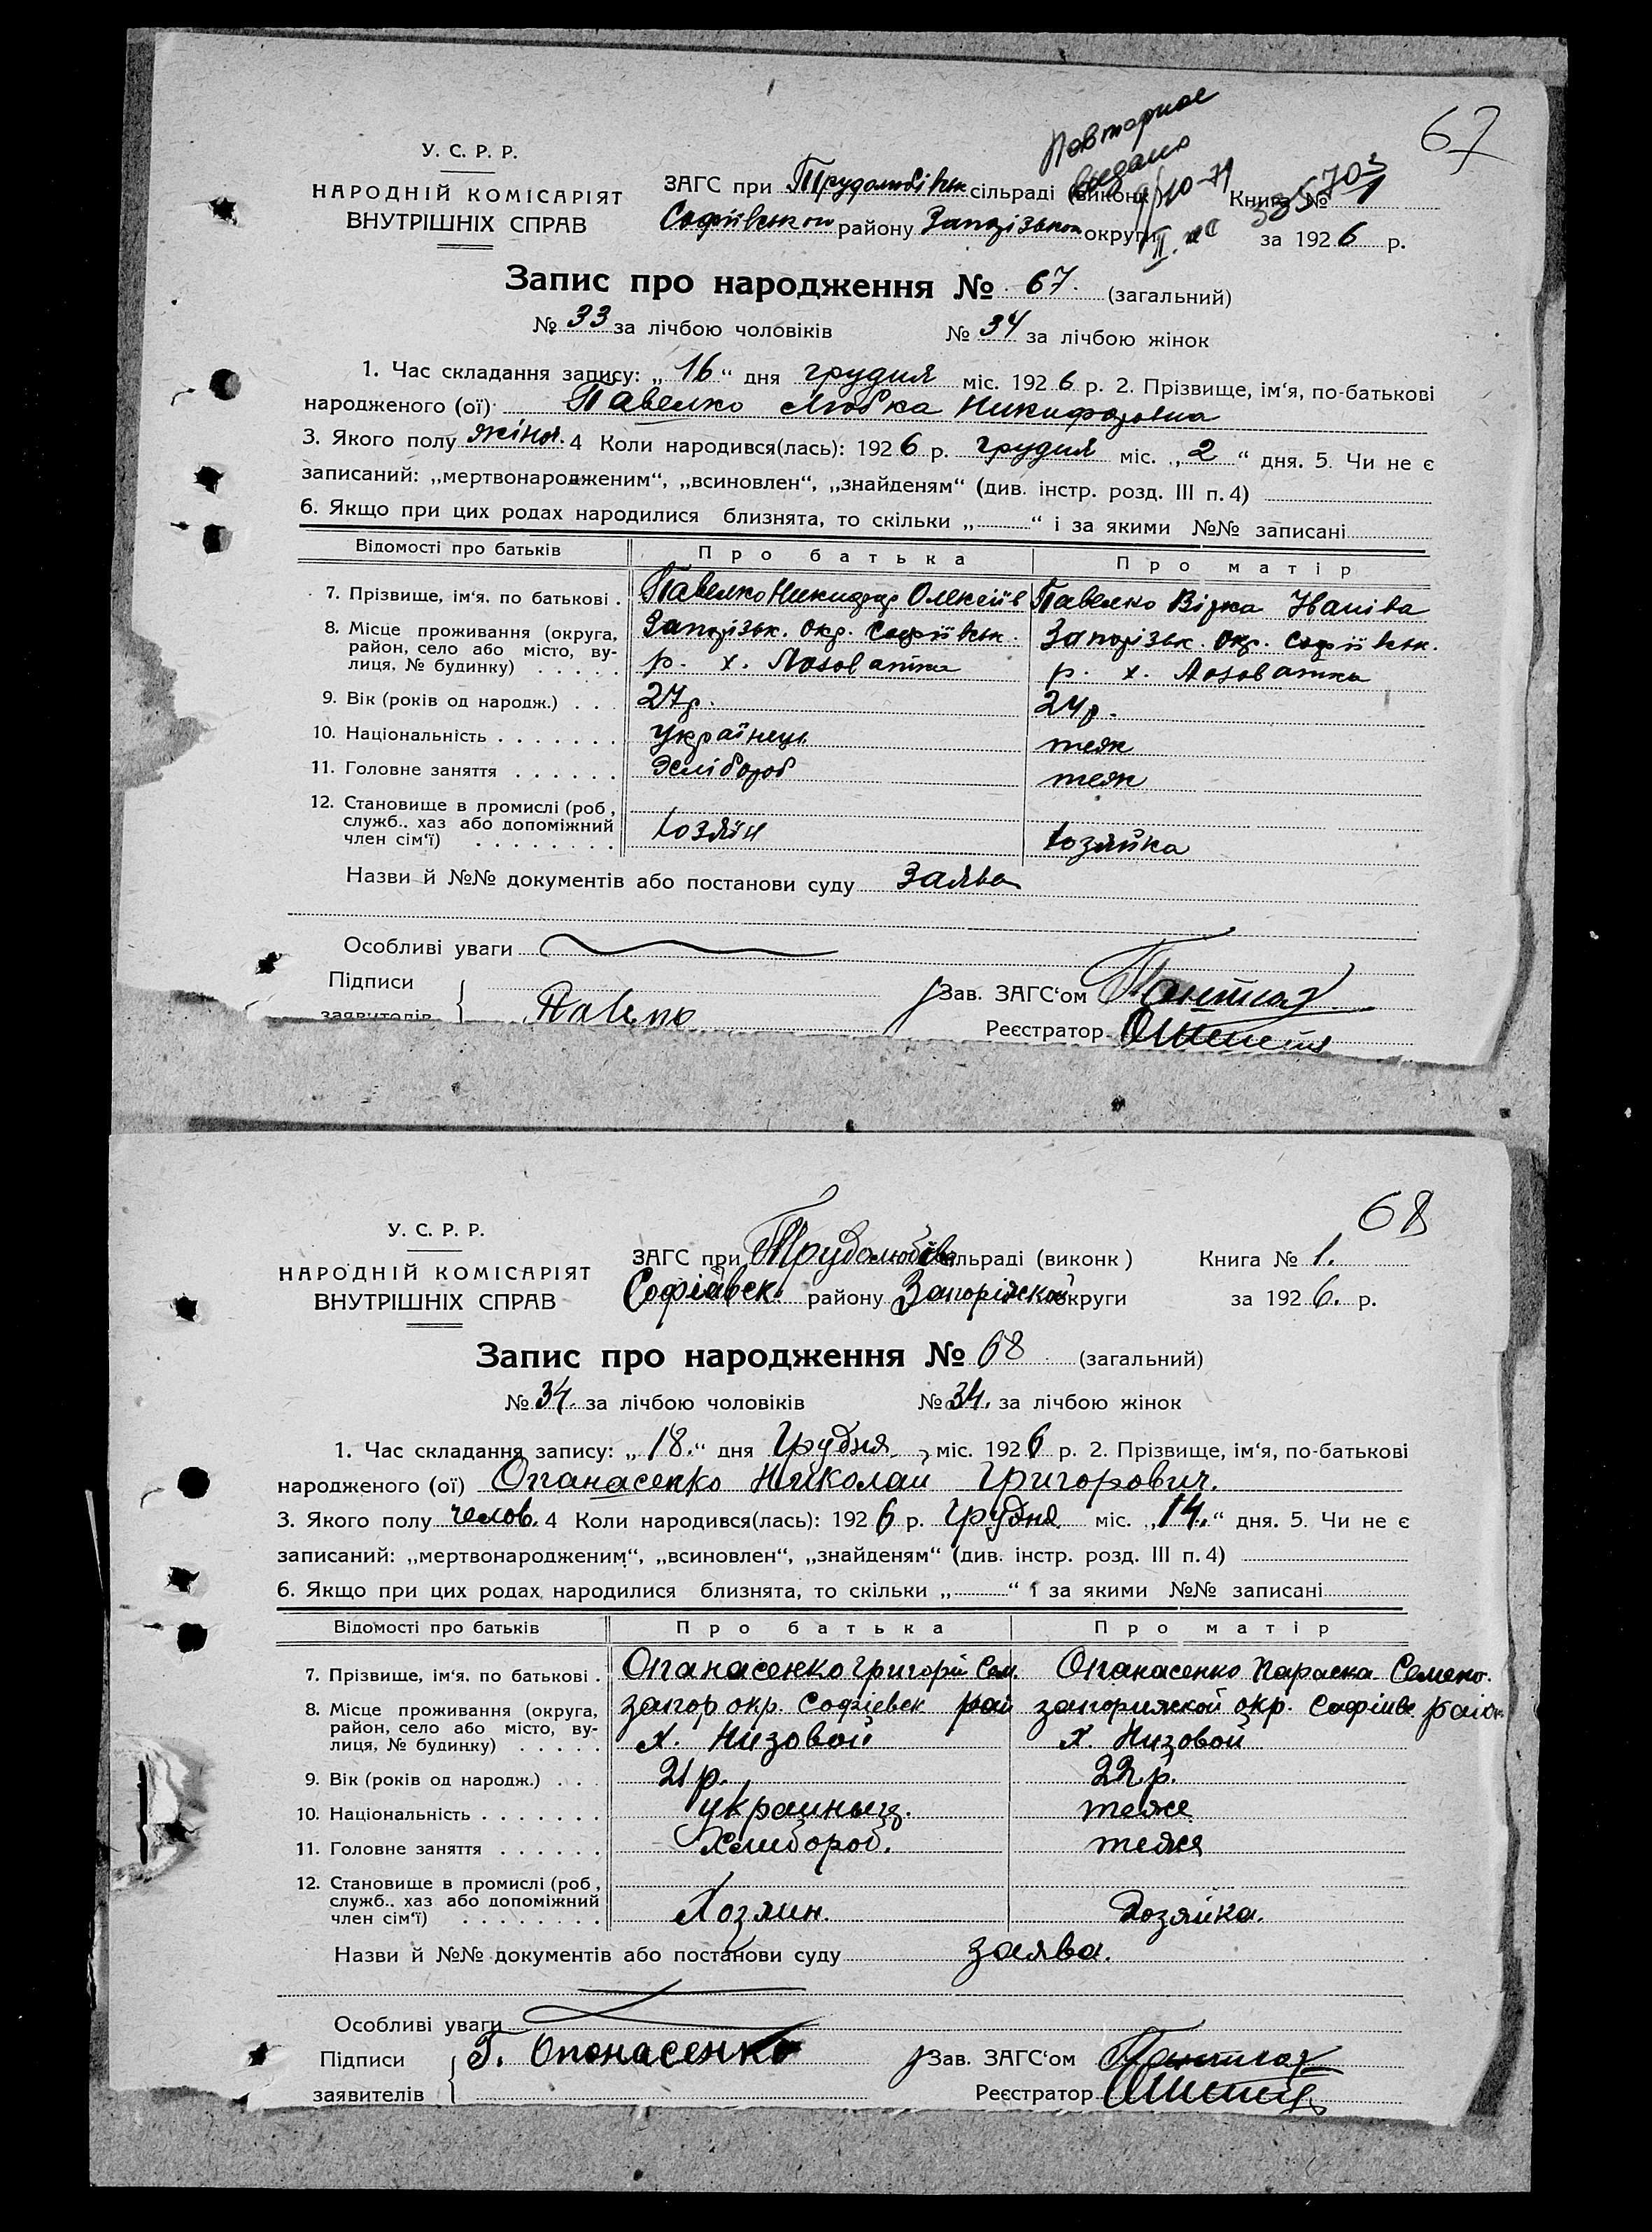 67
Повторное
видано
У. С. Р. Р.
НАРОДНІЙ КОМІСАРІЯТ
ВНУТРІШНІХ СПРАВ
ЗАГС при Трудолюбівськ сільраді (виконк) Книга № 1
Софіївського району Запорізької округи за 1926 р.
Запис про народження № 67. (загальний)
№ 33 за лічбою чоловіків № 34 за лічбою жінок
1. Час складання запису: „16“ дня грудня міс. 1926 р. 2. Прізвище, ім‘я, по-батькові
народженого (ої) Павелко Любка Никифоровна
3. Якого полу жіноч. 4 Коли народився(лась): 1926 р. грудня міс. „2“ дня. 5. Чи не є
записаний: „мертвонародженим“, „всиновлен“, „знайденям“ (див. інстр. розд. III п. 4)
6. Якщо при цих родах народилися близнята, то скільки „ “ і за якими №№ записані
Відомості про батьків Про батька Про матір
7. Прізвище, ім‘я, по батькові . Павелко Никифор Олексіїв Павелко Вірка Іванівна
8. Місце проживання (округа, Запорізьк. окр. Софіївськ. Запорізьк. окр. Софіївськ.
район, село або місто, ву-
лиця, № будинку) . . . . . р. х. Лозоватка р. х. Лозоватка
9. Вік (років од народж.) . . . 27р. 24р.
10. Національність . . . . . . . українець теж
11. Головне заняття . . . . . . хлібороб теж
12. Становище в промислі (роб.,
служб.. хаз або допоміжний
член сім‘ї) . . . . . . . . хозяїн хозяйка
Назви й №№ документів або постанови суду Заява
Особливі уваги
Підписи
заявителів Павелко
Зав. ЗАГС‘ом
Реєстратор
68
У. С. Р. Р.
НАРОДНІЙ КОМІСАРІЯТ
ВНУТРІШНІХ СПРАВ
ЗАГС при Трудолюбівс сільраді (виконк) Книга № 1.
Софіевск. району Запоріжской округи за 1926. р.
Запис про народження № 68 (загальний)
№ 34. за лічбою чоловіків № 34. за лічбою жінок
1. Час складання запису: „18.“ дня Грудня міс. 1926 р. 2. Прізвище, ім‘я, по-батькові
народженого (ої) Опанасенко Николай Григорович.
3. Якого полу челов. 4 Коли народився(лась): 1926 р. Грудня міс. „14.“ дня. 5. Чи не є
записаний: „мертвонародженим“, „всиновлен“, „знайденям“ (див. інстр. розд. III п. 4)
6. Якщо при цих родах народилися близнята, то скільки „ “ і за якими №№ записані
Відомості про батьків Про батька Про матір
7. Прізвище, ім‘я, по батькові . Опанасенко Григорій Сем. Опанасенко Параска Семено.
8. Місце проживання (округа, Запор окр. Софіевск рай запорижской окр. Софіивс район
район, село або місто, ву-
лиця, № будинку) . . . . . х. Низовой х. Низовой
9. Вік (років од народж.) . . . 21р. 22р.
10. Національність . . . . . . . украиныц. теже
11. Головне заняття . . . . . . Хлибороб. теже
12. Становище в промислі (роб.,
служб.. хаз або допоміжний
член сім‘ї) . . . . . . . . Хозяин. Хозяйка.
Назви й №№ документів або постанови суду заява.
Особливі уваги
Підписи Г. Опонасенко
заявителів
Зав. ЗАГС‘ом
Реєстратор